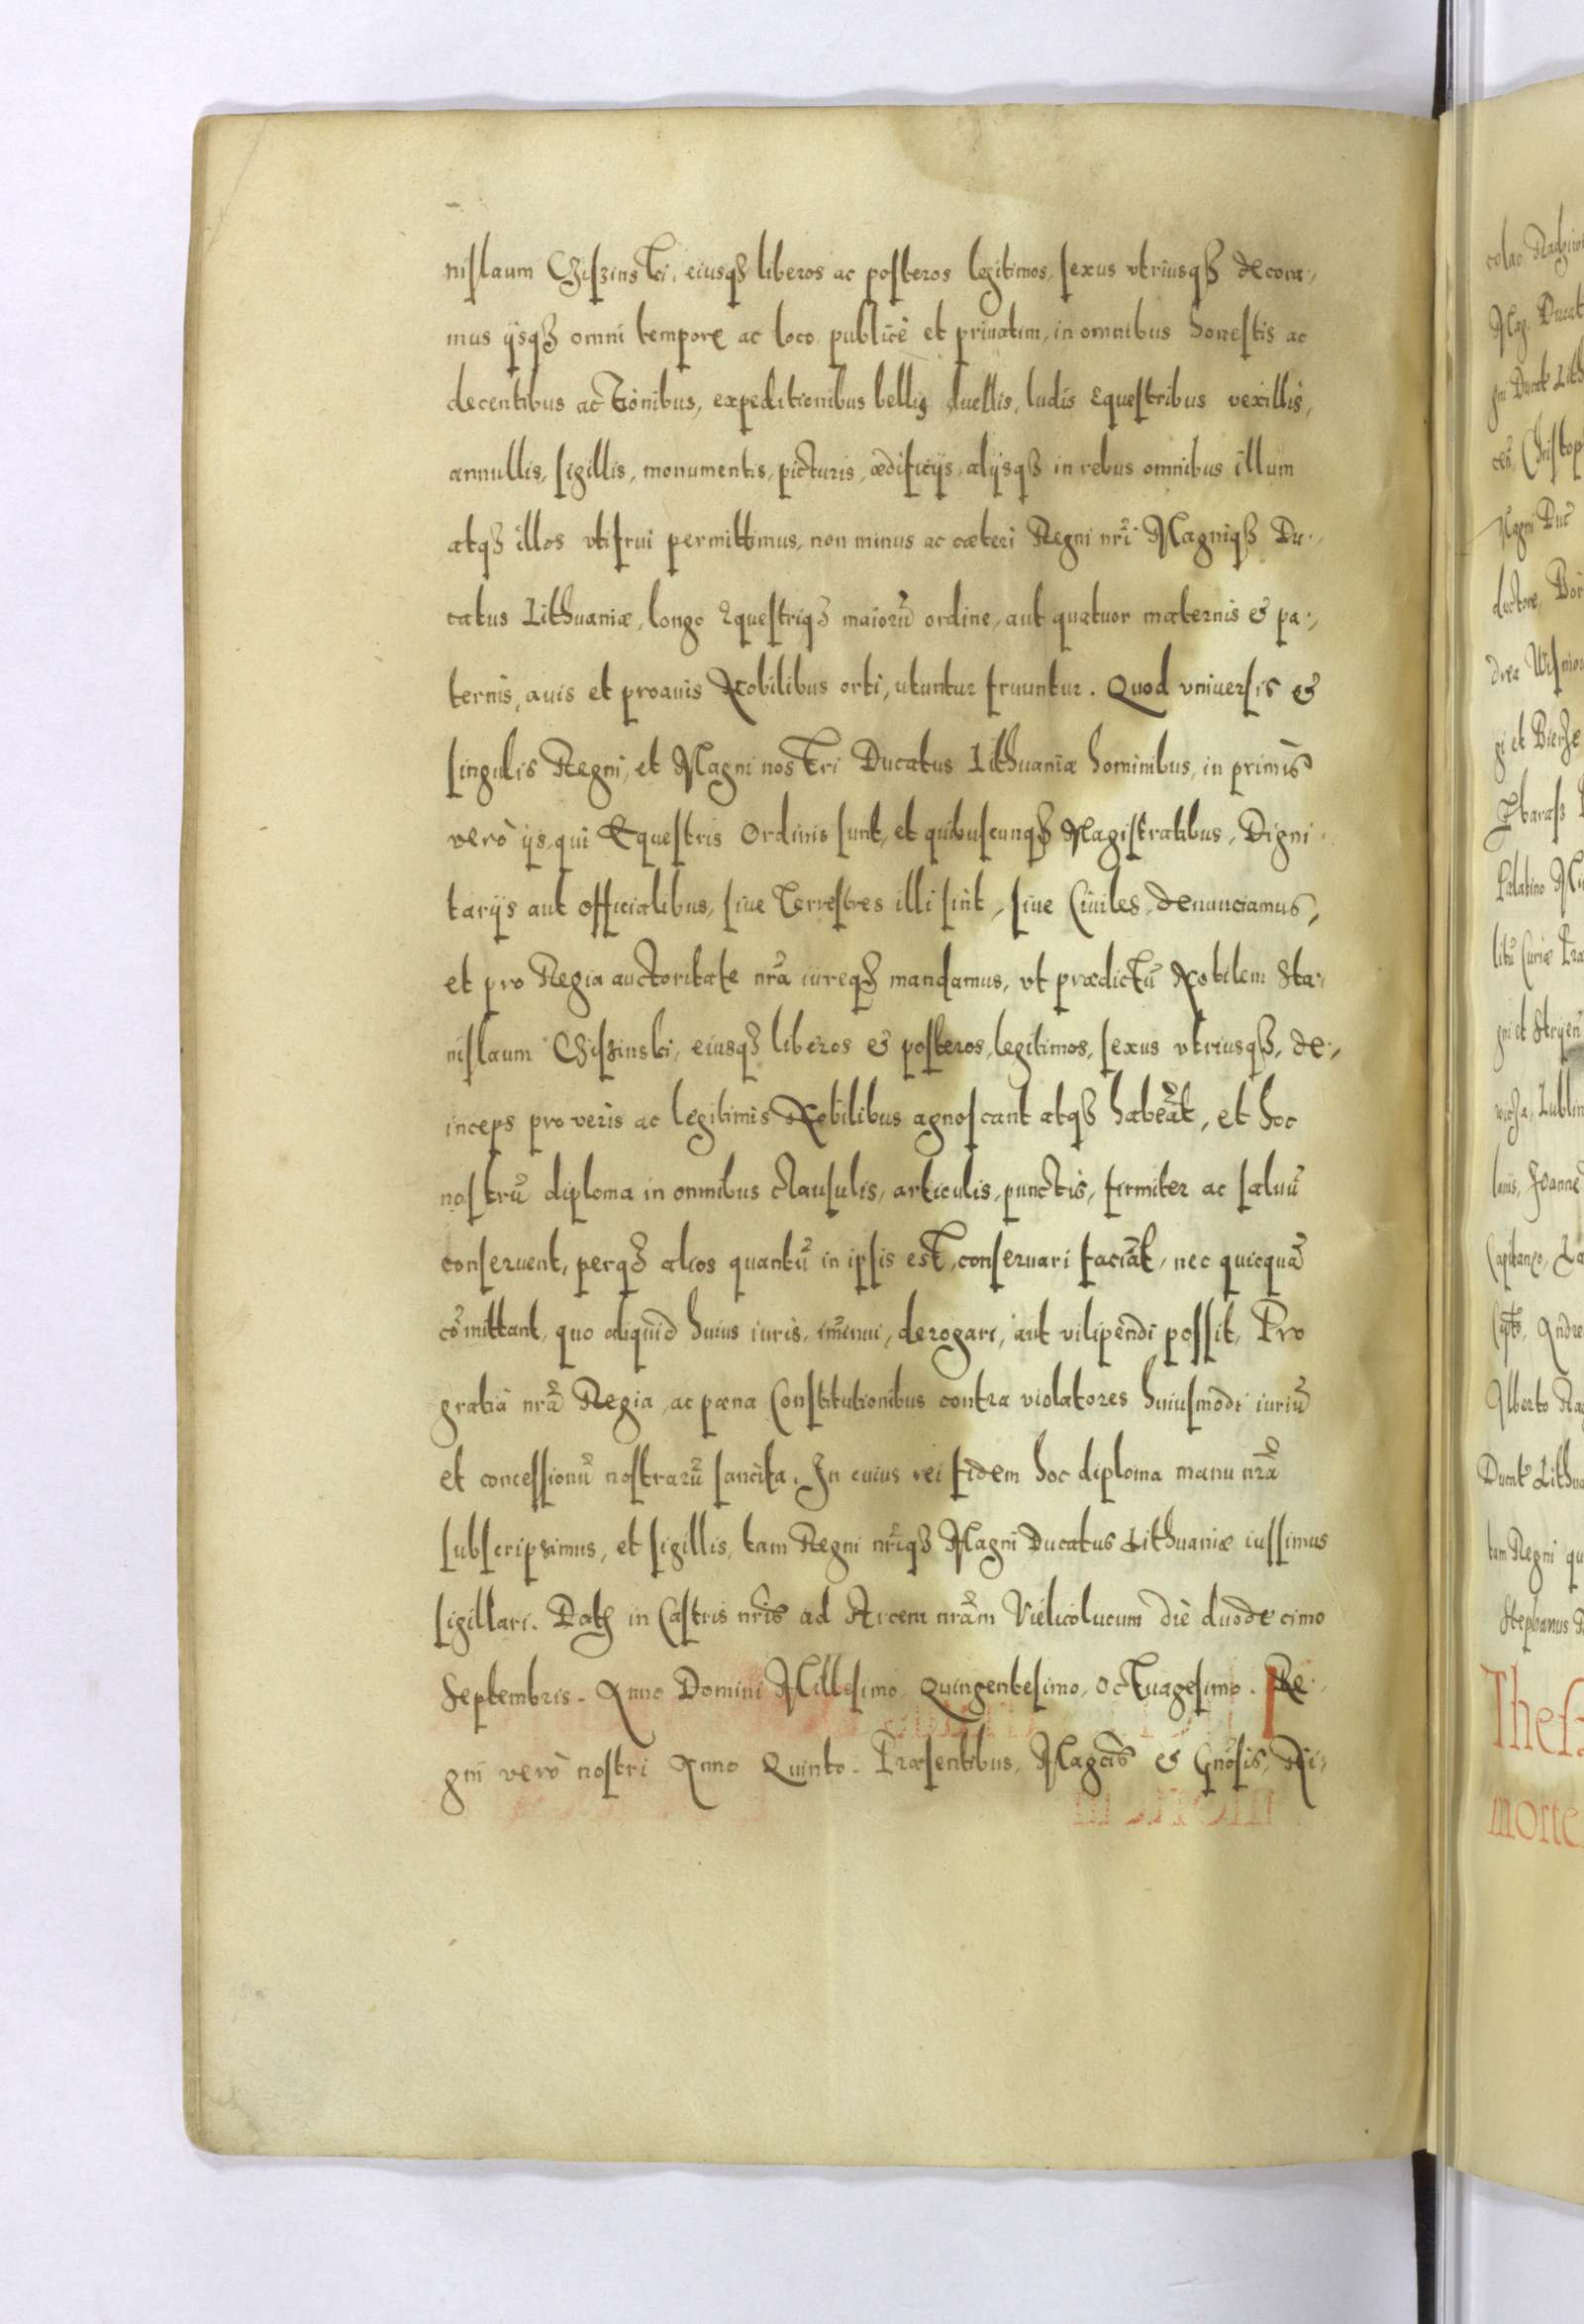 niſlaum Chiſzinski, eiusqȝ liberos ac poſteros legitimos, ſexus vtriusqȝ decora-,
mus ijsqȝ omni tempore ac loco publicè et priuatim, in omnibus honeſtis ac
decentibus actionibus, expeditionibus bellis duellis, ludis equeſtribus vexillis,
annullis, ſigillis, monumentis, picturis, ædificijs, alijsqȝ in rebus omnibus illum
atqȝ illos vtifrui permittimus, non minus ac cæteri Regni nr̃i Magniqȝ Du-,
catus Lithuaniæ, longo equeſtriqȝ maiorũ ordine, aut quatuor maternis & pa-,
ternis, auis et proauis Nobilibus orti, utuntur fruuntur. Quod vniuerſis &
ſingulis Regni, et Magni nostri Ducatus Lithuaniæ hominibus, in primis
verò ijs, qui Equeſtris Ordinis ſunt, et quibuſcunqȝ Magiſtratibus, Digni-
tarijs aut officialibus, ſiue Terreſtres illi ſint, ſiue Ciuiles, denunciamus,
et pro Regia auctoritate nr̃a iureqȝ mandamus, vt prædictũ Nobilem Sta-,
niſlaum Chiſzinski, eiusqȝ liberos & poſteros, legitimos, ſexus vtriusqȝ, de-,
inceps pro veris ac legitimis Nobilibus agnoſcant atqȝ habeãt, et hoc
noſtrũ diploma in omnibus clauſulis, articulis, punctis, firmiter ac ſaluũ
conſeruent, perqȝ alios quantũ in ipſis est, conſeruari faciãt, nec quicquã
cõmittant, quo aliquid huius iuris, im̃inui, derogari, aut vilipendi poſſit, Pro
gratia nr̃a Regia, ac pæna Conſtitutionibus contra violatores huiuſmodi iuriũ
et conceſſionũ noſtrarũ ſancita. In cuius rei fidem hoc diploma manu nr̃a
ſubſcripsimus, et ſigillis, tam Regni nr̃iqȝ Magni Ducatus Lithuaniæ iuſſimus
ſigillari. Datȝ in Caſtris nr̃is ad Arcem nr̃am Vielicolucum diè duodecimo
Septembris. Anno Domini Milleſimo, Quingenteſimo, Octuageſimo. Re-,
gni verò noſtri Anno Quinto. Præſentibus, Magcis & Gnõsis, Ni-,